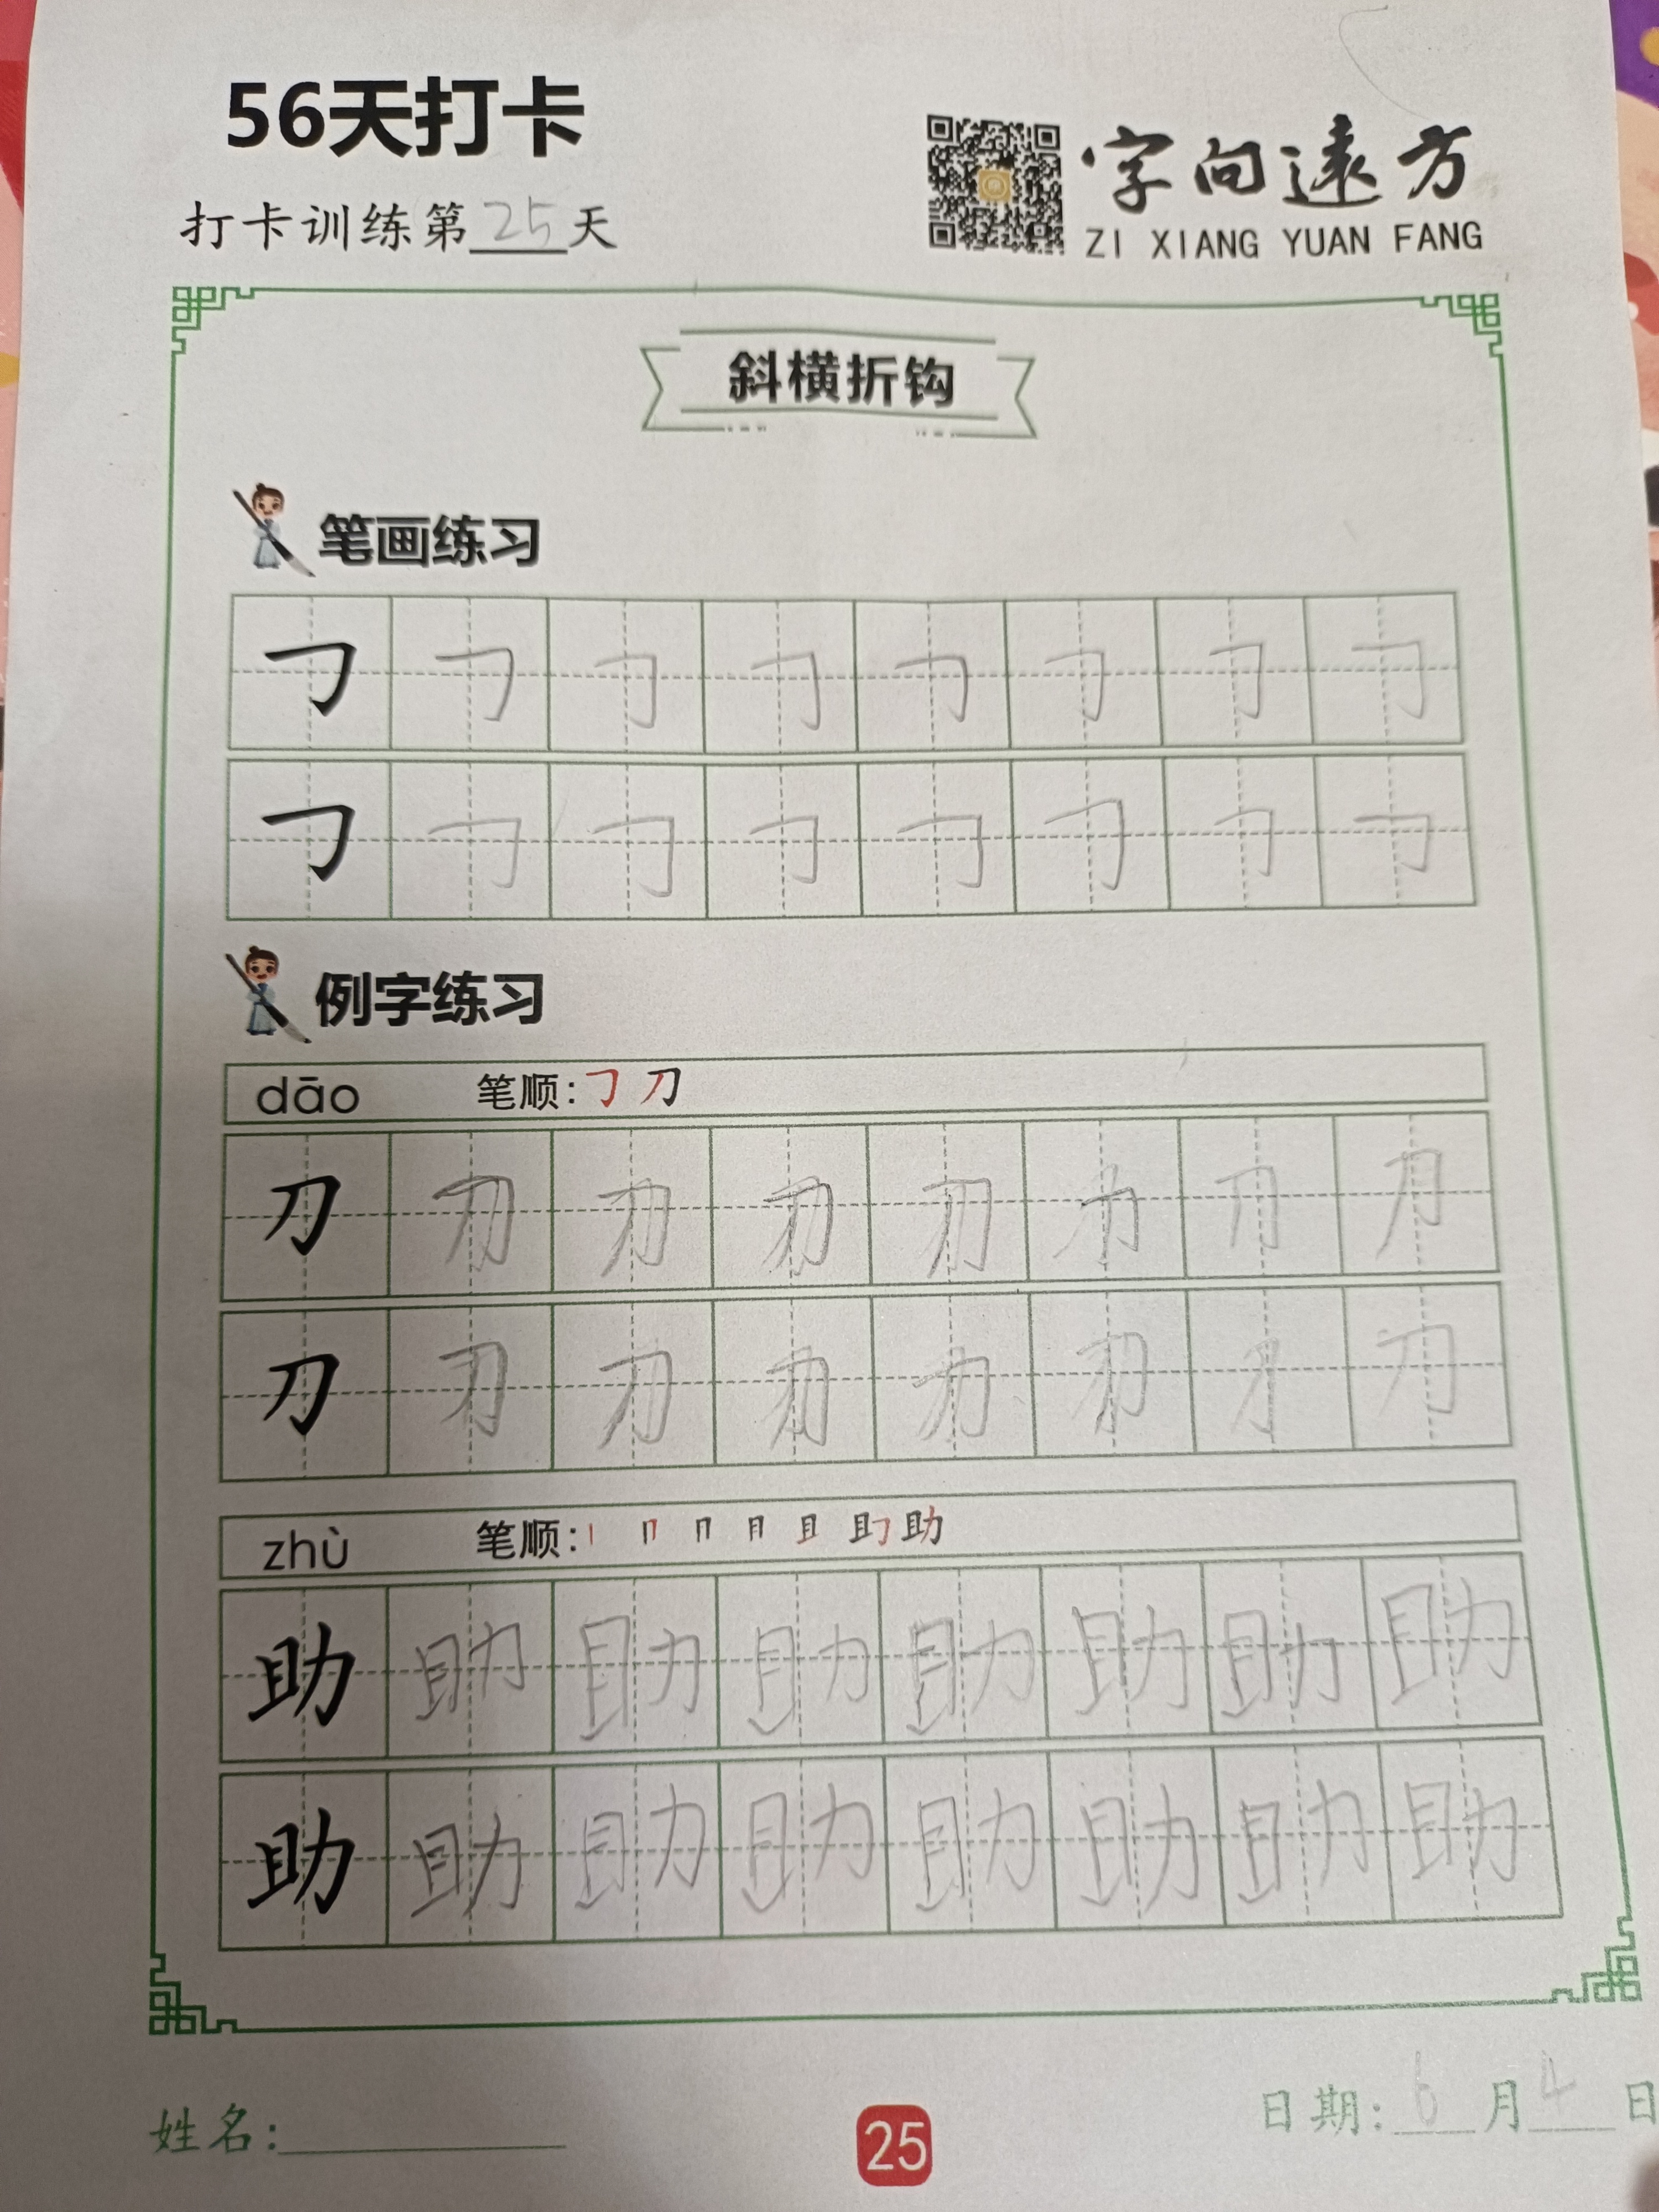 56天打卡
字向遠方
打卡训练第25天
ZI XIANG YUAN FANG
斜横折钩
笔画练习
㇆ ㇆ ㇆ ㇆ ㇆ ㇆ ㇆ ㇆
㇆ ㇆ ㇆ ㇆ ㇆ ㇆ ㇆ ㇆
例字练习
dāo 笔顺:㇆ 刀
刀 刀 刀 刀 刀 力 刀 刀
刀 刀 刀 刀 力 刀 刀 刀
zhù 笔顺:丨 冂 冂 月 且 助
助 助 助 助 助 助 助 助
助 助 助 助 助 助 助 助
姓名:
25
日期:6月4日